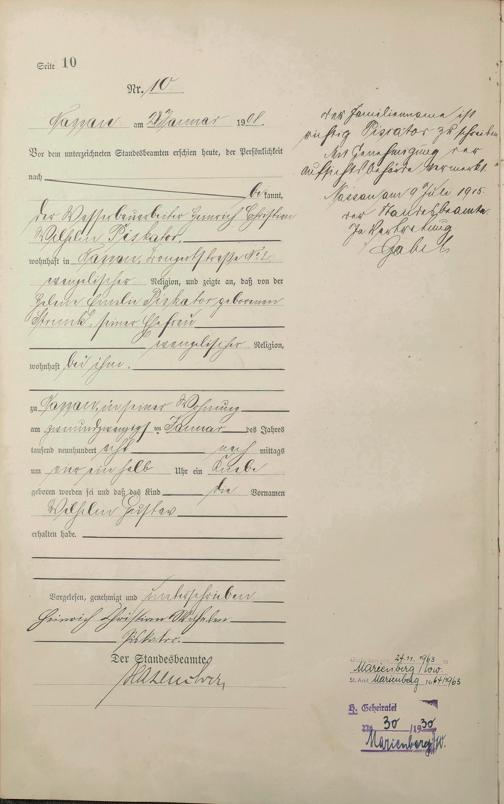 Seite 10
Nr. 10
Nassau am 28 Januar 1908.
Vor dem unterzeichneten Standesbeamten erschien heute, der Persönlichkeit
nach
be kannt,
der Wasserbauarbeiter Heinrich Christian
Wilhelm Piskator
wohnhaft in Nassau,
evangelischer Religion, und zeigte an, daß von der
Helene Emilie Piskator geborenen
Strunk, seiner Ehefrau
evangelischer Religion,
wohnhaft bei ihm.
zu Nassau, in seiner Wohnung
am zweiundzwanzigsten Januar des Jahres
tausend neunhundert acht nach mittags
um ein halb Uhr ein Knabe
geboren worden sei und daß das Kind die Vornamen
Wilhelm Gustav
erhalten habe.
Vorgelesen, genehmigt und unterschrieben
Heinrich Christian Wilhelm
Piskator.
Der Standesbeamte.
der Familienname ist
richtig Piscator zu schreiben
Mit Genehmigung der
Aufsichtsbehörde vermerkt.
Nassau am 9 Juli 1915
der Standesbeamte
In Vertretung
Gabel
24.11.1963
Marienberg/Ww.
St. Amt Marienberg 64/1963
H. Geheiratet
No 30/1930
Marienberg/W.